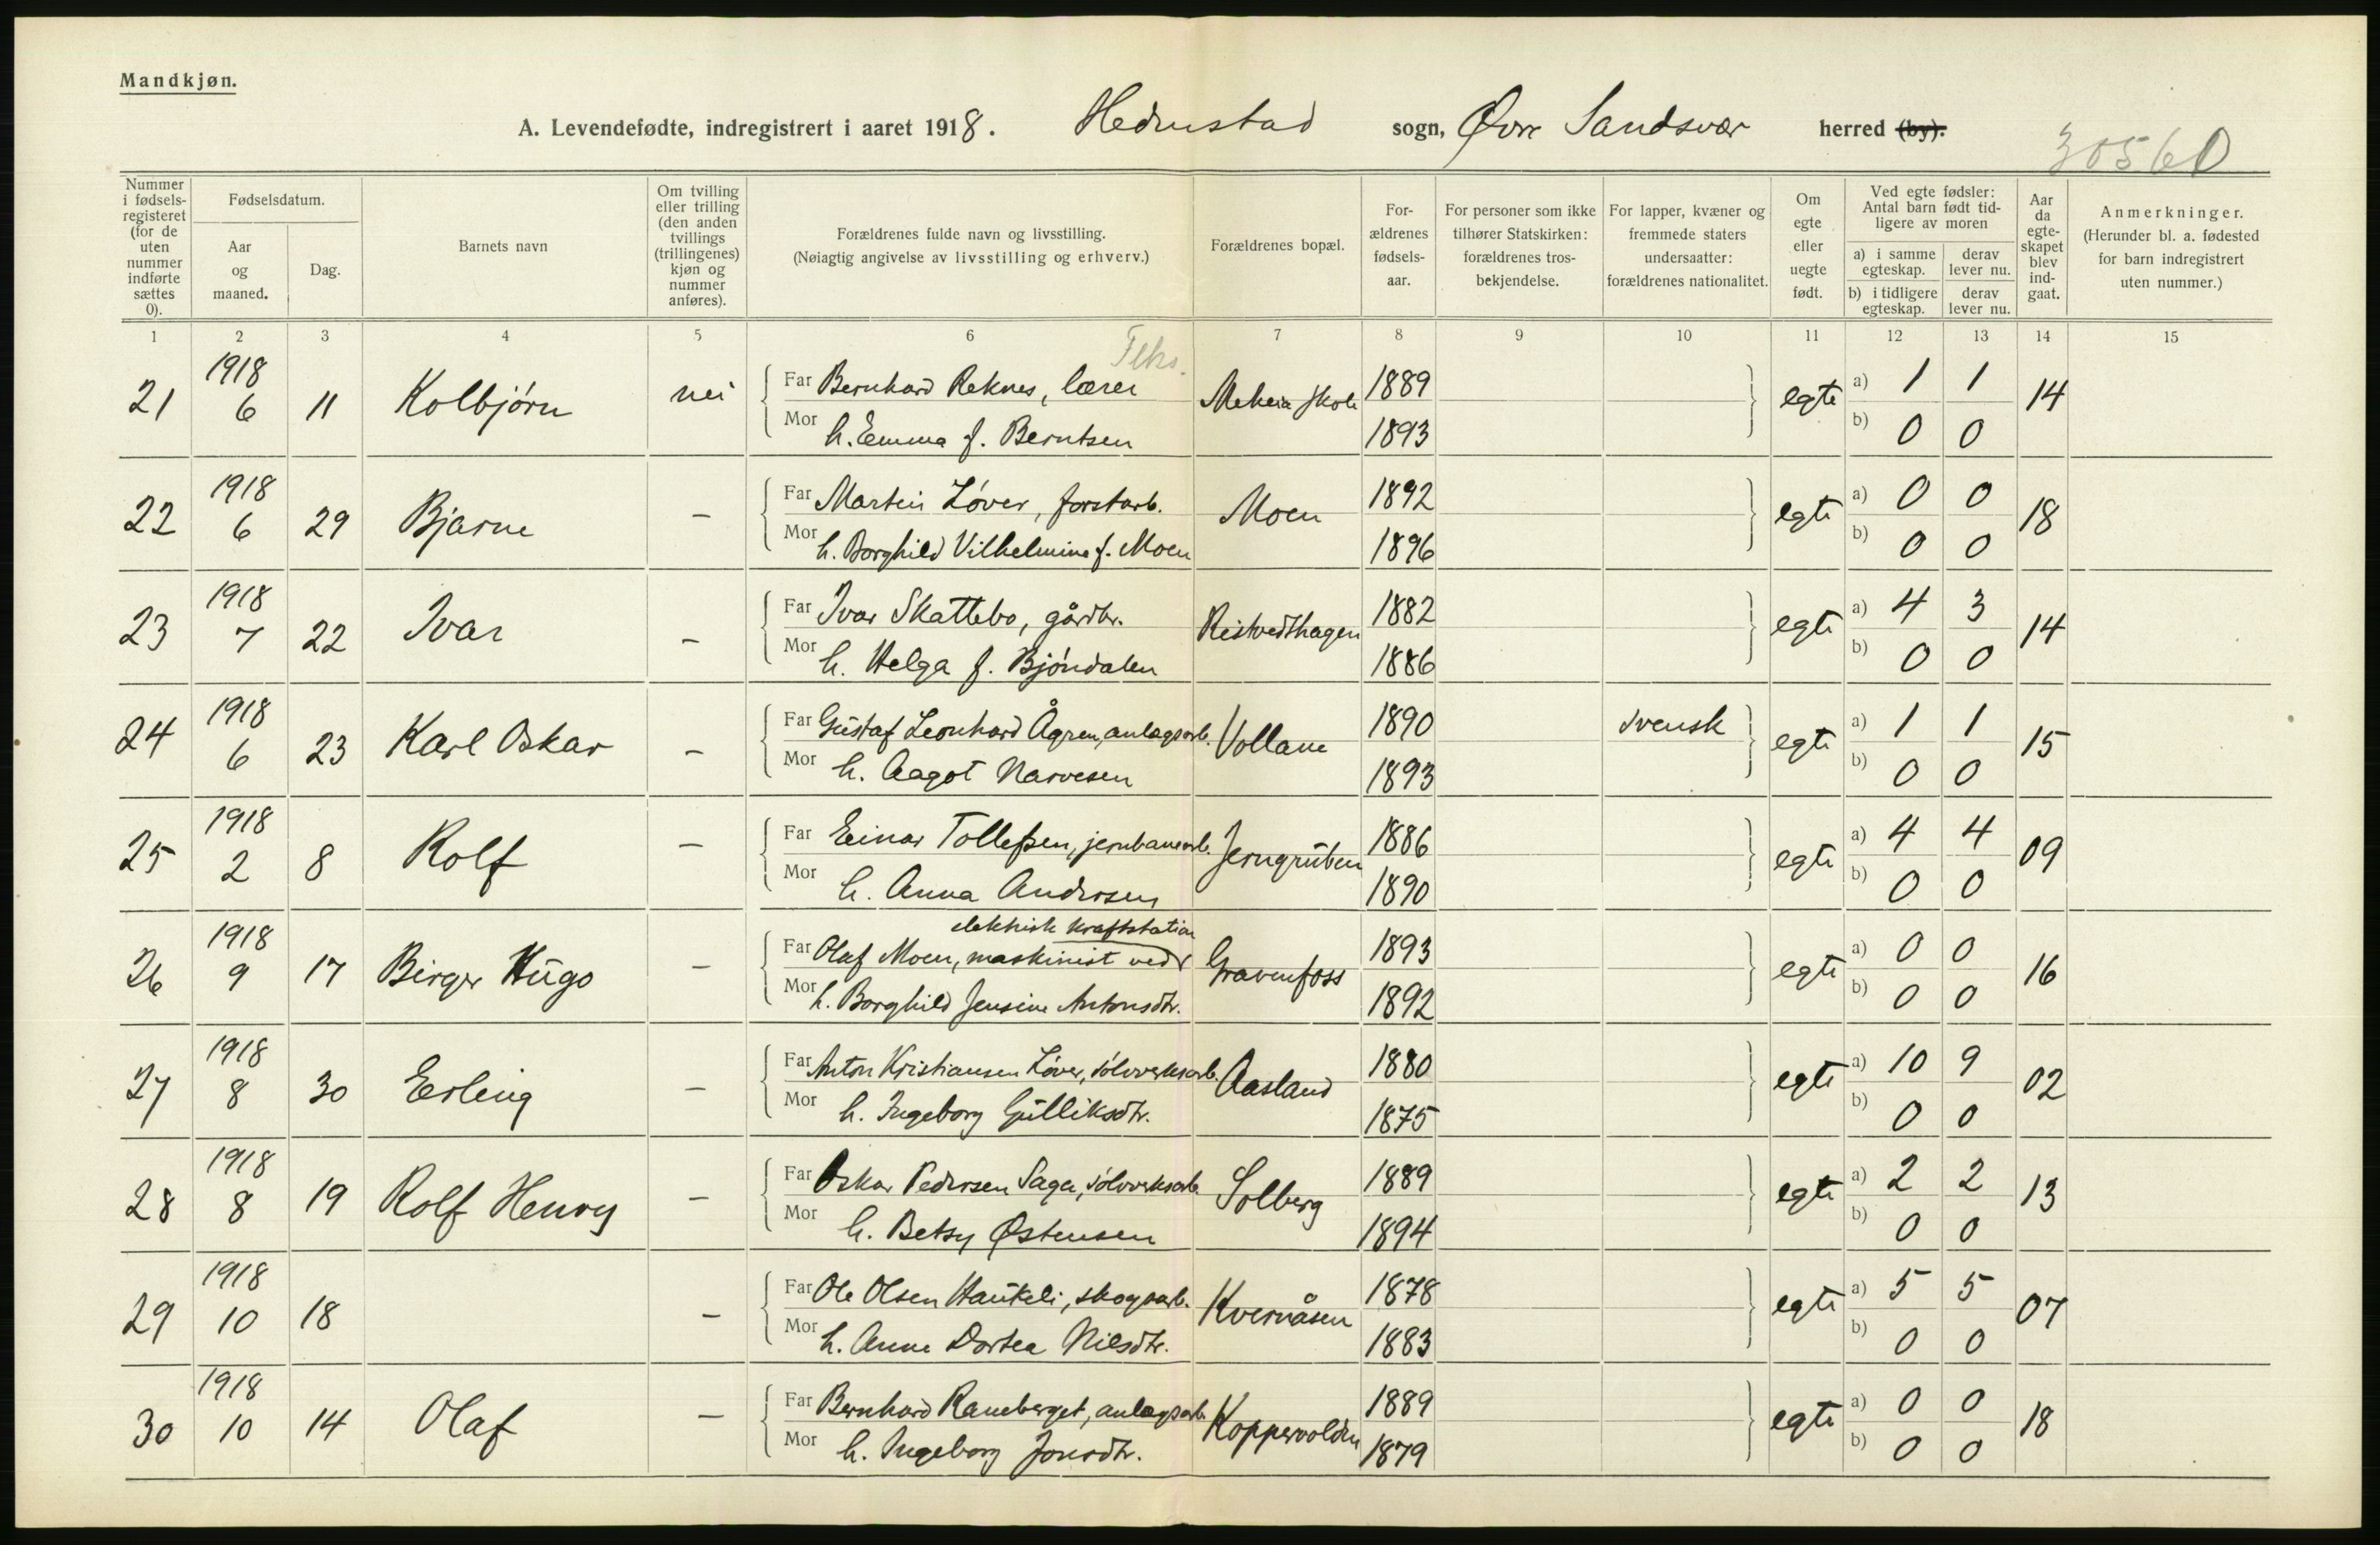 Mandkjøn.
A. Levendefødte, indregistrert i aaret 1918. Hedenstad sogn, Øvre Sandsvær herred (by).
30560
Nummer i fødselsregisteret (for de uten nummer indførte sættes 0).
Fødselsdatum.
Aar og maaned.
Dag.
Barnets navn
Om tvilling eller trilling (den anden tvillings (trillingenes) kjøn og nummer anføres).
Forældrenes fulde navn og livsstilling.
(Nøiagtig angivelse av livsstilling og erhverv.)
Forældrenes bopæl.
Forældrenes fødselsaar.
For personer som ikke tilhører Statskirken: forældrenes trosbekjendelse.
For lapper, kvæner og fremmede staters undersaatter: forældrenes nationalitet.
Om egte eller uegte født.
Ved egte fødsler: Antal barn født tidligere av moren
a) i samme egteskap. derav lever nu.
b) i tidligere egteskap. derav lever nu.
Aar da egteskapet blev indgaat.
Anmerkninger.
(Herunder bl. a. fødested for barn indregistrert uten nummer.)
1 2 3 4 5 6 7 8 9 10 11 12 13 14 15
21 1918 6 11 Kolbjørn nei Far Bernhard Reknes, lærer Meheia skole 1889 egte a) 1 1 14
Mor h. Emma f. Berntsen 1893 b) 0 0
22 1918 6 29 Bjarne – Far Martin Løver, forstarb. Moen 1892 egte a) 0 0 18
Mor h. Borghild Vilhelmine f. Moen 1896 b) 0 0
23 1918 7 22 Ivar – Far Ivar Skattebo, gårdbr. Ristvedthagen 1882 egte a) 4 3 14
Mor h. Helga f. Bjøndalen 1886 b) 0 0
24 1918 6 23 Karl Oskar – Far Gustaf Leonhard Ågren, anlægsarb. Vollane 1890 svensk egte a) 1 1 15
Mor h. Aagot Narvesen 1893 b) 0 0
25 1918 2 8 Rolf – Far Einar Tollefsen, jernbanearb. Jerngruben 1886 egte a) 4 4 09
Mor h. Anna Andersen 1890 b) 0 0
elektrisk kraftstation
26 1918 9 17 Birger Hugo – Far Olaf Moen, maskinist ved Gravenfoss 1893 egte a) 0 0 16
Mor h. Borghild Jensine Antonsdtr. 1892 b) 0 0
27 1918 8 30 Erling – Far Anton Kristiansen Løver, sølvverksarb. Aasland 1880 egte a) 10 9 02
Mor h. Ingeborg Gulliksdtr. 1875 b) 0 0
28 1918 8 19 Rolf Henry – Far Oskar Pedersen Saga, sølvverksarb. Solberg 1889 egte a) 2 2 13
Mor h. Betsy Østensen 1894 b) 0 0
29 1918 10 18 – Far Ole Olsen Haukeli, skogsarb. Kvernåsen 1878 egte a) 5 5 07
Mor h. Anne Dortea Nilsdtr. 1883 b) 0 0
30 1918 10 14 Olaf – Far Bernhard Raneberget, anlægsarb. Koppervolden 1889 egte a) 0 0 18
Mor h. Ingeborg Jonsdtr. 1879 b) 0 0